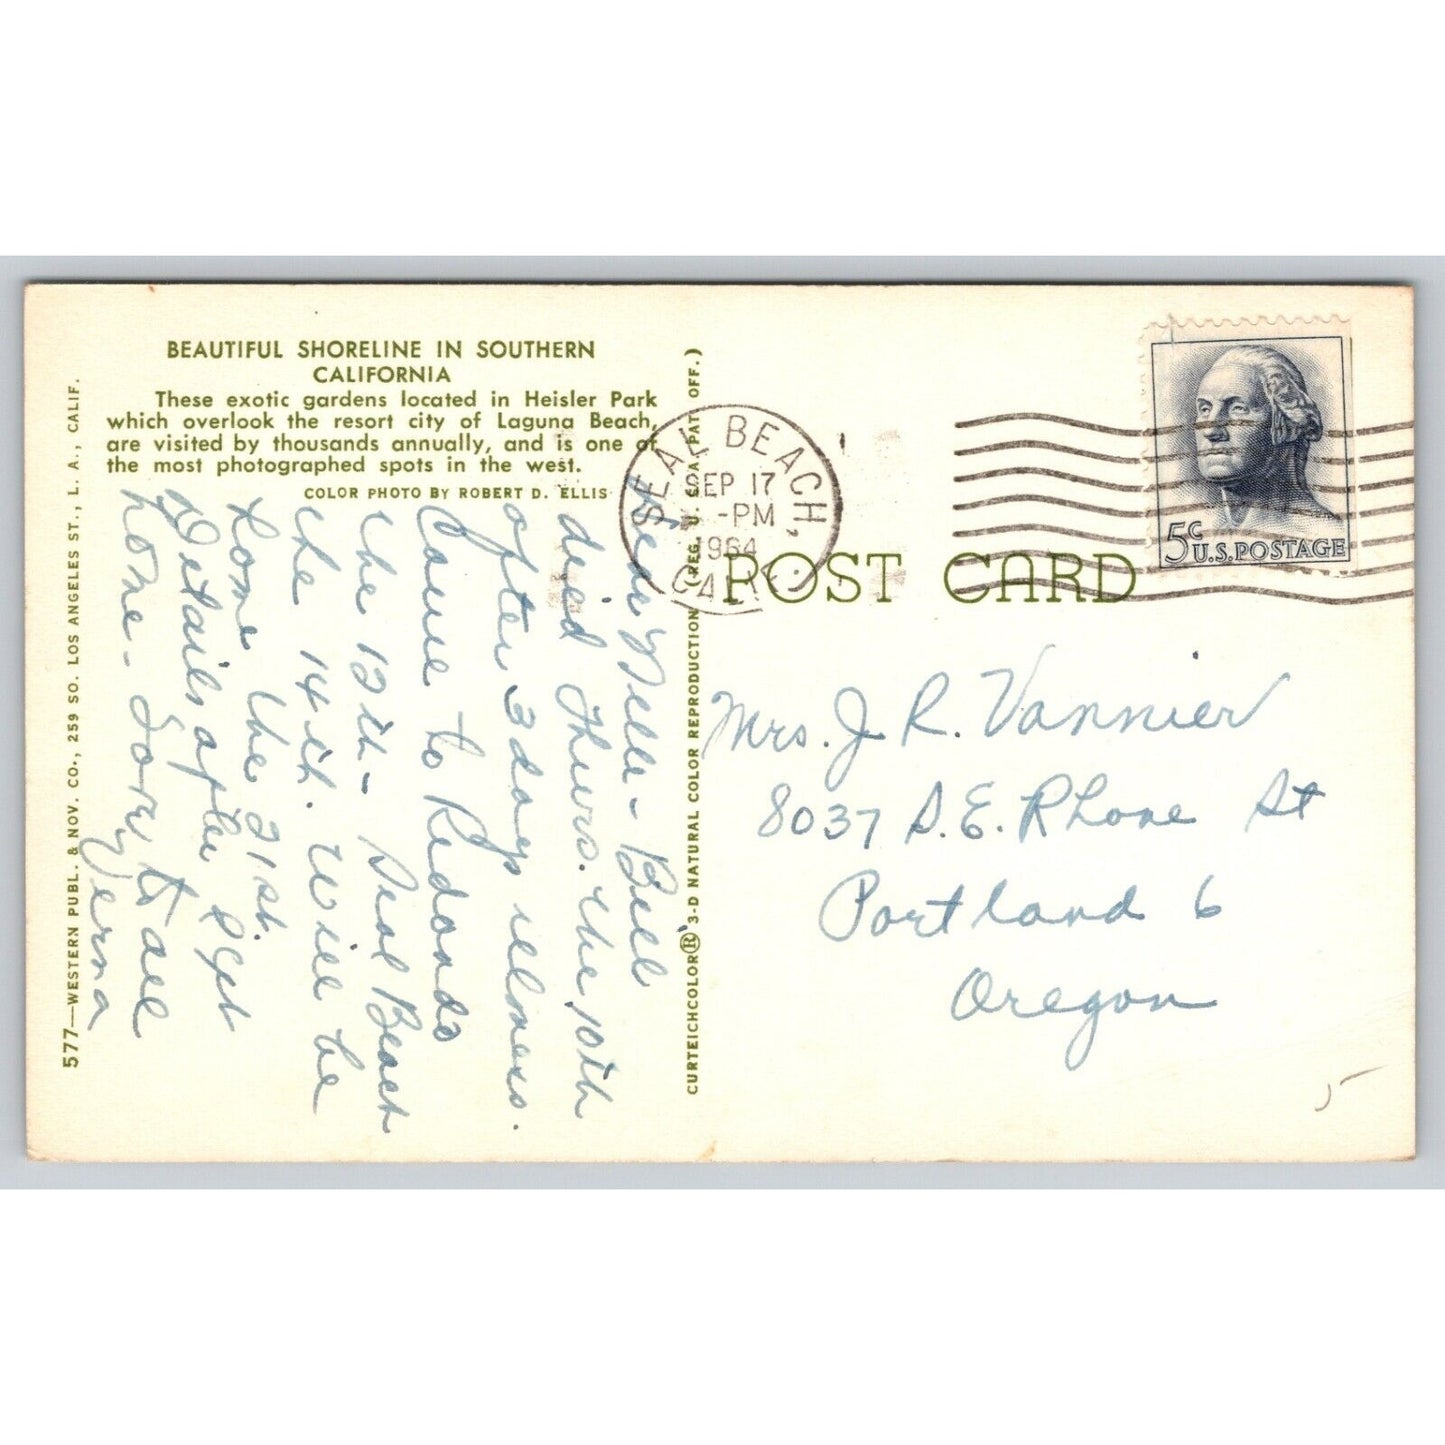 BEAUTIFUL SHORELINE IN SOUTHERN
CALIFORNIA
These exotic gardens located in Heisler Park
which overlook the resort city of Laguna Beach,
are visited by thousands annually, and is one of
the most photographed spots in the west.
COLOR PHOTO BY ROBERT D. ELLIS
577—WESTERN PUBL. & NOV. CO., 259 SO. LOS ANGELES ST., L. A., CALIF.
Bill
died Thurs. the 10th
after 3 days illness.
Came to Redondo
the 13th - Seal Beach
the 14th. Will be
home the 21st.
Details after I get
home - Sorry to all
Verna
CURTEICHCOLOR® 3-D NATURAL COLOR REPRODUCTION (REG. U. S. A. PAT. OFF.)
SEAL BEACH,
SEP 17
-PM
1964
CALIF.
5c
U.S. POSTAGE
POST CARD
Mrs. J. R. Vannier
8037 S.E. Rhone St
Portland 6
Oregon
5